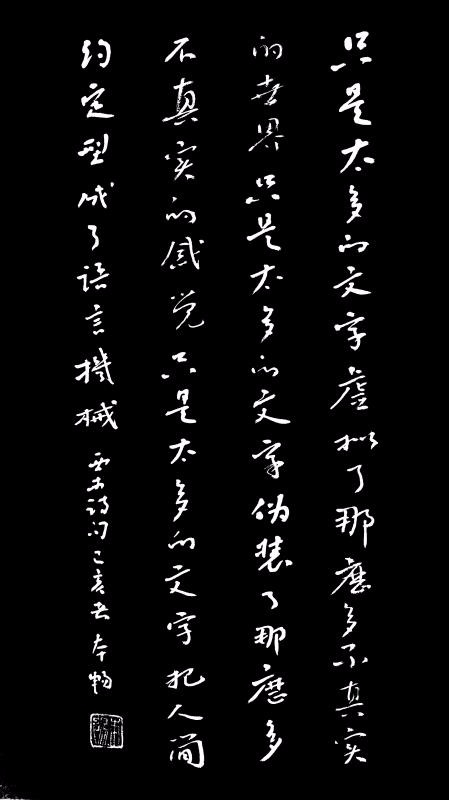 只是太多的文字虚拟了那麽多不真实
的世界只是太多的文字伪装了那麽多
不真实的感觉只是太多的文字把人简
约定型成了語言機械 西木詩句己亥書本畅